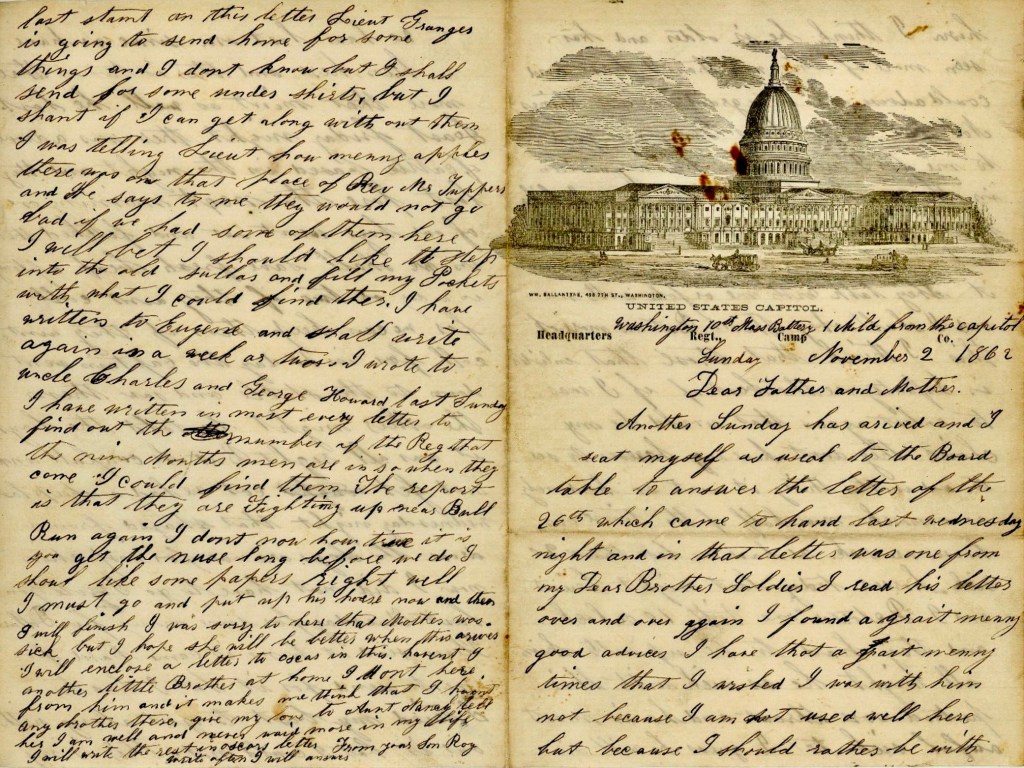 last stamt on this letter Lieut Granger
is going to send home for some
things and I dont know but I shall
send for some under shirts, but I
shant if I can get along with out them
I was telling Lieut how menny apples
there was on that place of Rev Mr Tuppers
and he says to me they would not go
bad if we had some of them here
I well bet I should like to step
into the old sullar and fill my Pockets
with what I could find ther. I have
written to Eugene and shall write
again in a week or two I wrote to
uncle Charles and George Howard last Sunday
I have written in most every letter to
find out the number of the Reg that
the nine Months men are in so when they
come I could find them The report
is that they are Fighting up near Bull
Run again I dont now how true it is
you get the nuse long before we do I
shout like some papers right well
I must go and put up his horse now and then
I will finish I was sorry to here that Mother was
sick but I hope she will be better when this arives
I will enclose a letter to oscar in this. havent I
another little Brother at home I dont here
from him and it makes me think that I haynt
any Brother there, give my love to Aunt Nancy tell
her I am well and never was more in my life
I will write the rest in oscars letter From your Son Roy
write often I will answer
WM. BALLANTYNE, 498 7TH ST., WASHINGTON.
UNITED STATES CAPITOL.
Washington 10th Mass Battery 1 Mild from the capitol
Headquarters Regt., Camp Co.
Sunday November 2 1862
Dear Father and Mother.
Another Sunday has arived and I
seat myself as useal to the Board
table to answer the letter of the
26th which came to hand last wednesday
night and in that letter was one from
my Dear Brother Soldier I read his letter
over and over again I found a grait menny
good advices I have that a grait menny
times that I wished I was with him
not because I am not used well here
but because I should rather be with